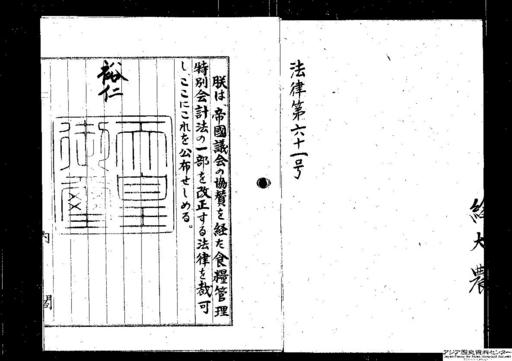 法律第六十一号
総大農
朕は、帝國議会の協賛を経た食糧管理
特別会計法の一部を改正する法律を裁可
し、ここにこれを公布せしめる。
裕仁
天皇御璽
内閣
アジア歴史資料センター